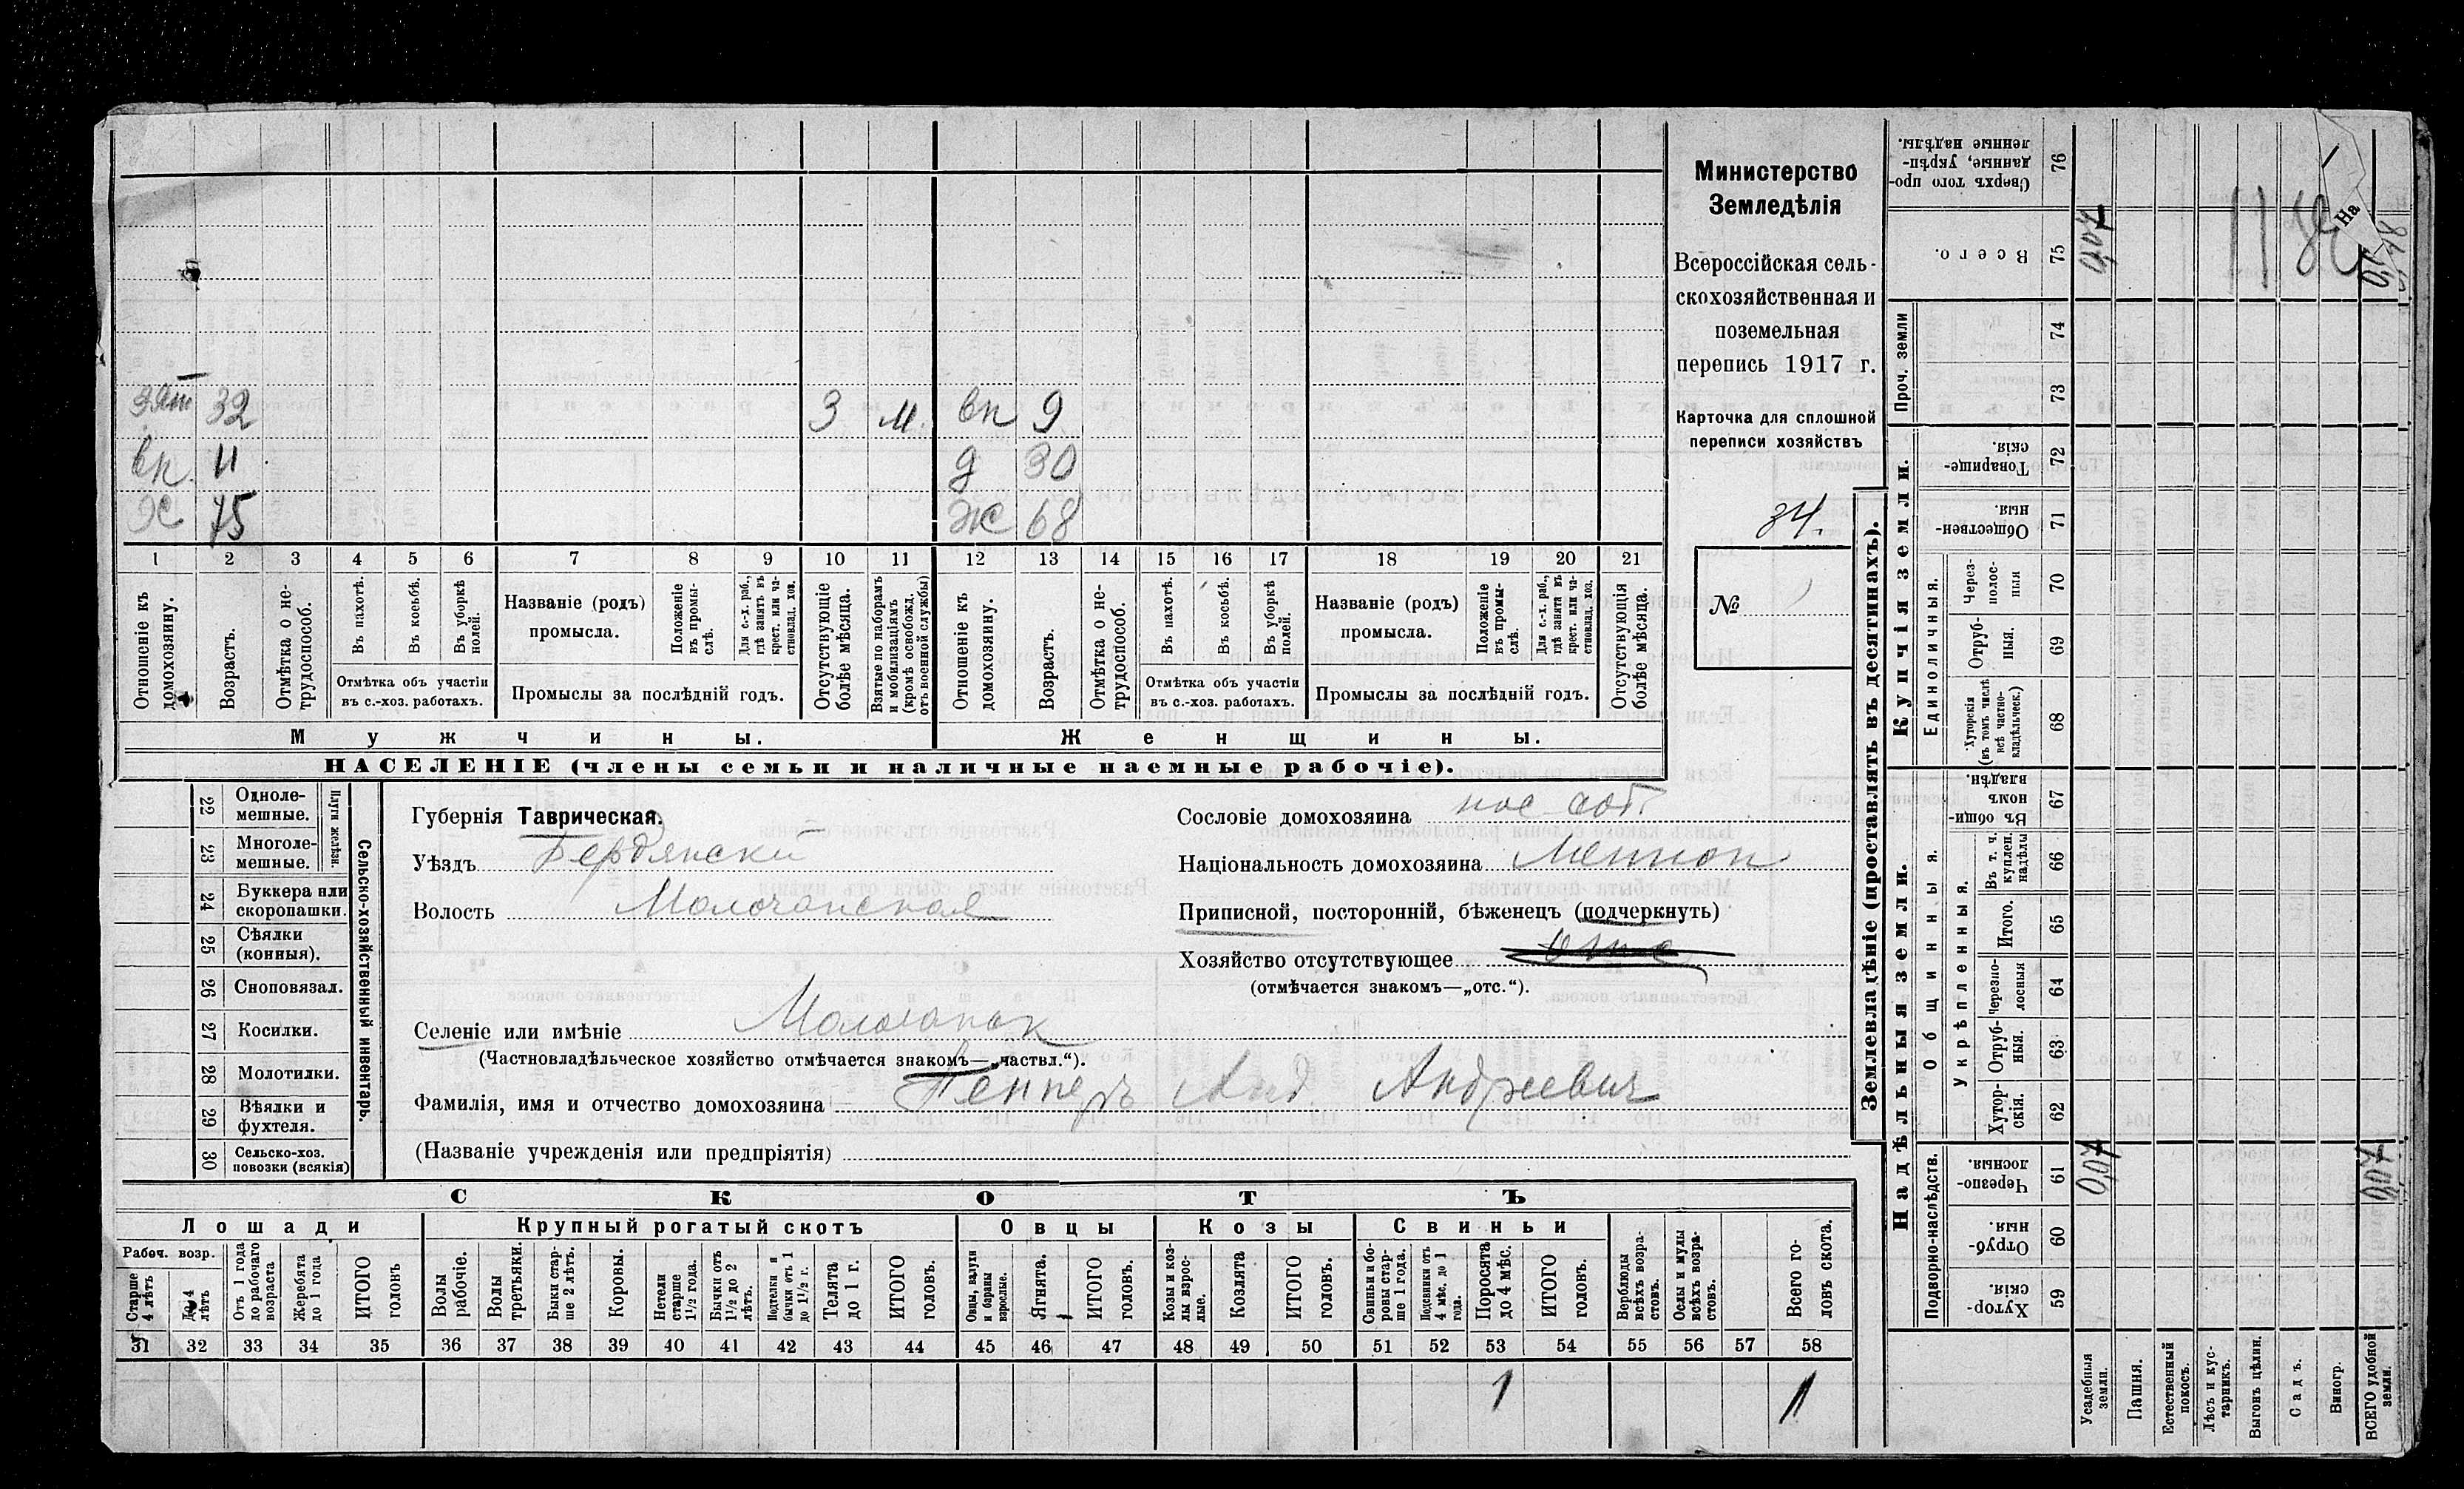 Министерство
Земледѣлія
Всероссійская сель-
скохозяйственная и
поземельная
перепись 1917 г.
Карточка для сплошной
переписи хозяйствъ
34.
№
зят 32 3 м. вн 9
вн. 11 д 30
Х 75 Ж 68
1 2 3 4 5 6 7 8 9 10 11 12 13 14 15 16 17 18 19 20 21
Отношеніе къ домохозяину.
Возрастъ.
Отмѣтка о не-трудоспособ.
Въ пахотѣ.
Въ косьбѣ.
Въ уборкѣ полей.
Отмѣтка объ участіи въ с.-хоз. работахъ.
Названіе (родъ) промысла.
Положеніе въ промы-слѣ.
Для с.-х. раб., гдѣ занятъ въ крест. или ча-стновлад. хоз.
Промыслы за послѣдній годъ.
Отсутствующіе болѣе мѣсяца.
Взятые по наборамъ и мобилизаціямъ (кромѣ освобожд. отъ военной службы)
Отношеніе къ домохозяину.
Возрастъ.
Отмѣтка о не-трудоспособ.
Въ пахотѣ.
Въ косьбѣ.
Въ уборкѣ полей.
Отмѣтка объ участіи въ с.-хоз. работахъ.
Названіе (родъ) промысла.
Положеніе въ промы-слѣ.
Для с.-х. раб., гдѣ занята въ крест. или ча-стновлад. хоз.
Промыслы за послѣдній годъ.
Отсутствующія болѣе мѣсяца.
Мужчины.
Женщины.
НАСЕЛЕНІЕ (члены семьи и наличные наемные рабочіе).
22 Одноле-мешные.
23 Многоле-мешные.
Плуги желѣзн.
24 Буккера или скоропашки.
25 Сѣялки (конныя).
26 Сноповязал.
27 Косилки.
28 Молотилки.
29 Вѣялки и фухтеля.
30 Сельско-хоз. повозки (всякія)
Сельско-хозяйственный инвентарь.
Губернія Таврическая.
Уѣздъ Бердянски
Волость Молочанская
Селеніе или имѣніе Молочанск
(Частновладѣльческое хозяйство отмѣчается знакомъ—„частвл.“).
Фамилія, имя и отчество домохозяина Теннеръ Анд. Андреевич
(Названіе учрежденія или предпріятія)
Сословіе домохозяина пос соб.
Національность домохозяина Меннон
Приписной, посторонній, бѣженецъ (подчеркнуть)
Хозяйство отсутствующее
(отмѣчается знакомъ—„отс.“).
СКОТЪ
Лошади
Крупный рогатый скотъ
Овцы
Козы
Свиньи
Рабоч. возр.
Старше 4 лѣтъ
До 4 лѣтъ
Отъ 1 года до рабочаго возраста
Жеребята до 1 года
ИТОГО головъ
Волы рабочіе.
Волы третьяки.
Быки стар-ше 2 лѣтъ.
Коровы.
Нетели старше 1½ года.
Бычки отъ 1½ до 2 лѣтъ.
Подтелки и бычки отъ 1 до 1½ г.
Телята до 1 г.
ИТОГО головъ.
Овцы, валухи и бараны взрослые.
Ягнята.
ИТОГО головъ.
Козы и коз-лы взрос-лые.
Козлята
ИТОГО головъ.
Свиньи и бо-ровы стар-ше 1 года.
Подсвинки отъ 4 мѣс. до 1 года.
Поросята до 4 мѣс.
ИТОГО головъ.
Верблюды всѣхъ возра-стовъ.
Ослы и мулы всѣхъ возра-стовъ.
Всего го-ловъ скота.
31 32 33 34 35 36 37 38 39 40 41 42 43 44 45 46 47 48 49 50 51 52 53 54 55 56 57 58
1 1
Землевладѣніе (проставлять въ десятинахъ).
Надѣльныя земли.
Купчія земли.
Проч. земли
Подворно-наслѣдств.
Общинныя.
Укрѣпленныя.
Единоличныя.
Сверхъ того про-данные, укрѣп-ленные надѣлы. 76
Всего. 75
74
73
Товарище-скія 72
Обществен-ныя. 71
Через-полос-ныя 70
Отруб-ныя. 69
Хуторскія (въ томъ числѣ всѣ частно-владѣльческ.) 68
Въ общи-номъ владѣн. 67
Въ т. ч. куплен. надѣлы 66
Итого. 65
Черезпо-лосныя 64
Отруб-ныя. 63
Хутор-скія. 62
Черезпо-лосныя. 61
Отруб-ныя. 60
Хутор-скія. 59
0,07
0,07
0,07
На
Усадебныя земли.
Пашня.
Естественный покосъ.
Лѣсъ и кус-тарникъ.
Выгонъ цѣлин.
Садъ.
Виногр.
ВСЕГО удобной земли.